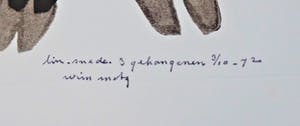 lin. snede. 3 gehangenen 9/10 - 72
wim motz